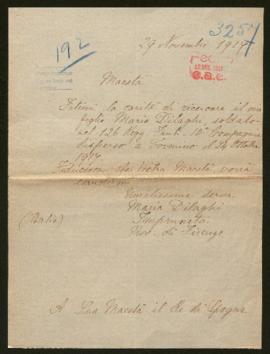 192
3257
29 Novembre 1917
Maestà
Fatemi la carità di ricercare il mio
figlio Mario Dilaghi, soldato
nel 126 Regg. Fant. 10ª Compagnia
disperso a il 24 Ottobre
1917
Fiduciosa che Vostra Maestà vorrà
Umilissima serva
Maria Dilaghi
(Italia) Impruneta
Prov. di Firenze
A Sua Maestà il Re di Spagna